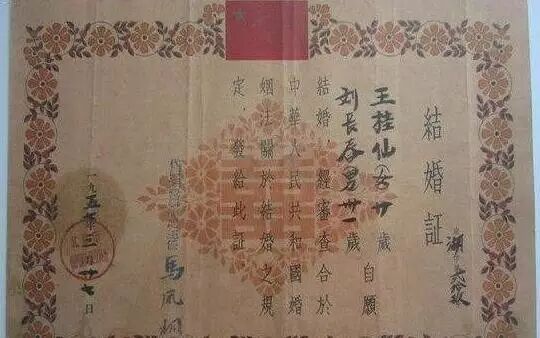 結婚証
王桂仙(女)廿歲自願
刘长春男卅一歲
結婚，經審查合於
中華人民共和國婚
姻法關於結婚之規
定，發給此証
馬
一九五年三月廿七日